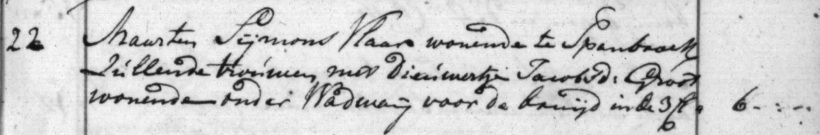 22 Maarten Sijmons Vlaar wonende te Spanbroek
Zùllende troùwen met Dieùwertje Jacobsd: Groot
wonende onder Wadwaij voor de bruijd in de 3/k 6 - : -